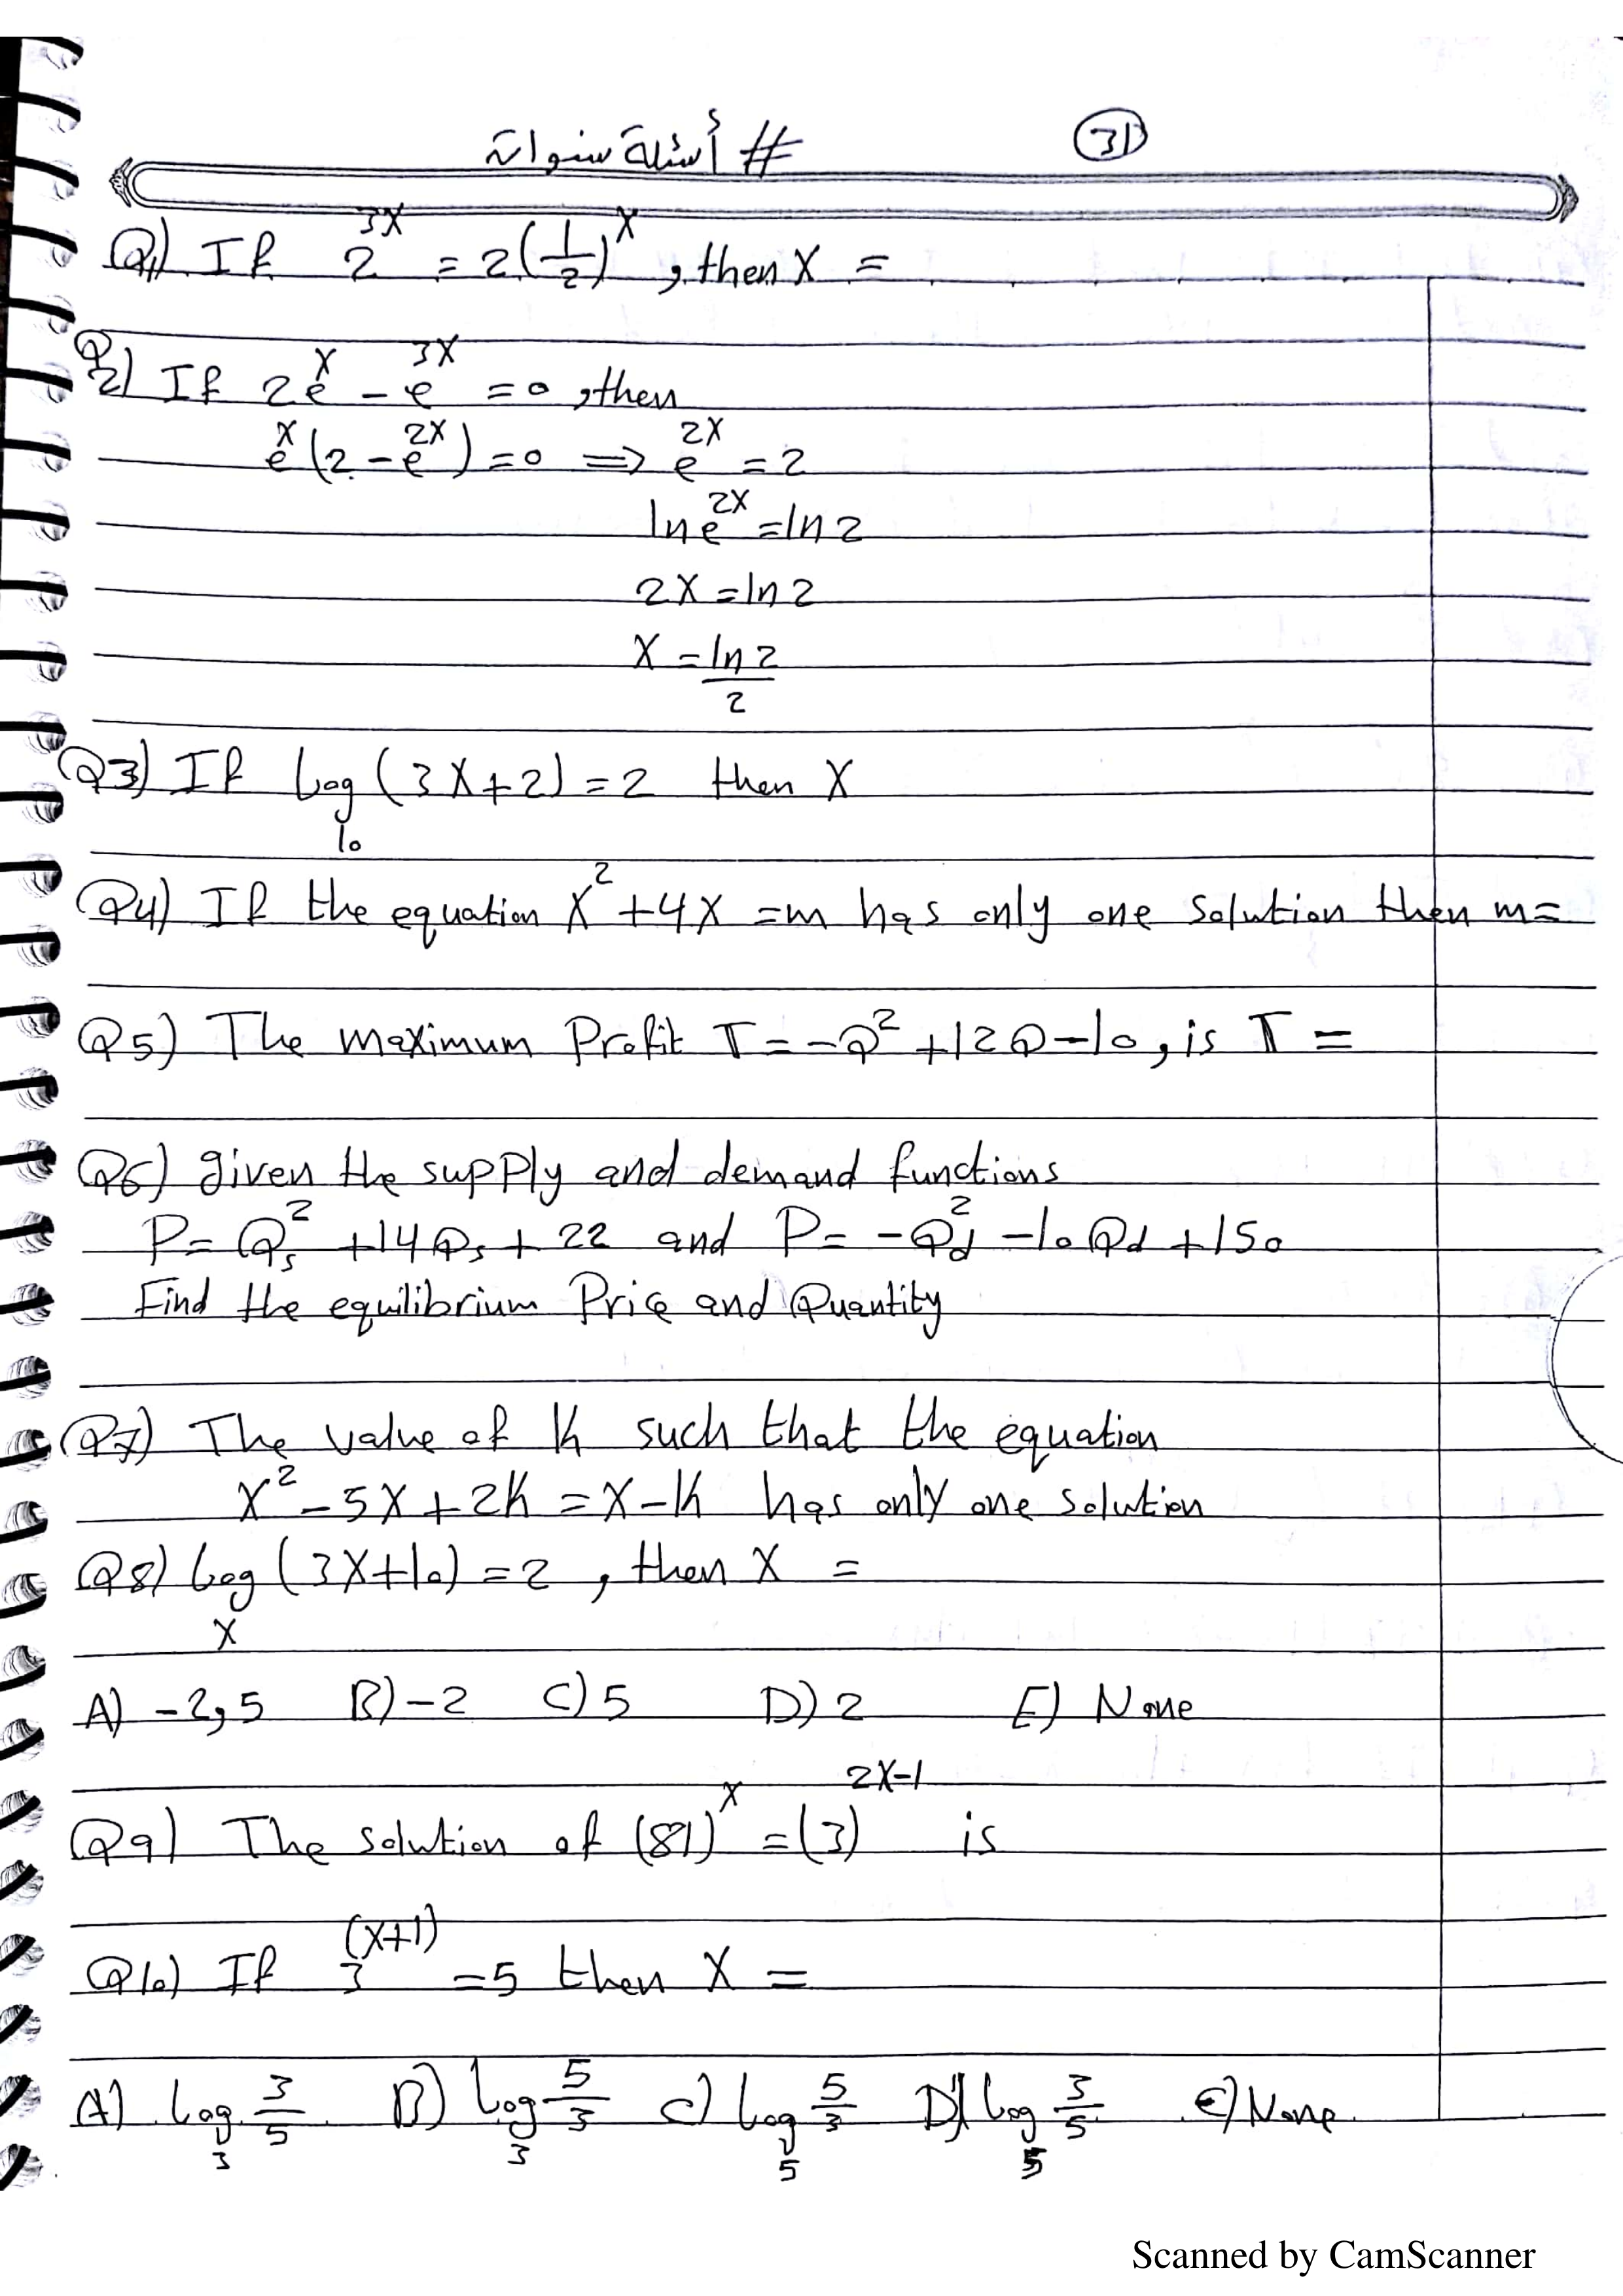 # أسئلة سنوات
31
Q1) If 2^{3X} = 2(1/2)^X , then X =
Q2) If 2e^X - e^{3X} = 0 , then
e^X (2 - e^{2X}) = 0 ⟹ e^{2X} = 2
ln e^{2X} = ln 2
2X = ln 2
X = ln 2 / 2
Q3) If Log_{10} (3X+2) = 2 then X
Q4) If the equation X^2 + 4X = m has only one solution then m =
Q5) The maximum Profit π = -Q^2 + 12Q - 10 , is π =
Q6) given the supply and demand functions
P = Qs^2 + 14Qs + 22 and P = -Qd^2 - 10Qd + 150
Find the equilibrium Price and Quantity
Q7) The value of K such that the equation
X^2 - 5X + 2K = X - K has only one solution
Q8) Log_X (3X+10) = 2 , then X =
A) -2, 5 B) -2 C) 5 D) 2 E) None
Q9) The solution of (81)^X = (3)^{2X-1} is
Q10) If 3^{(X+1)} = 5 then X =
A) Log_3 3/5 B) Log_3 5/3 C) Log_5 5/3 D) Log_5 3/5 E) None
Scanned by CamScanner